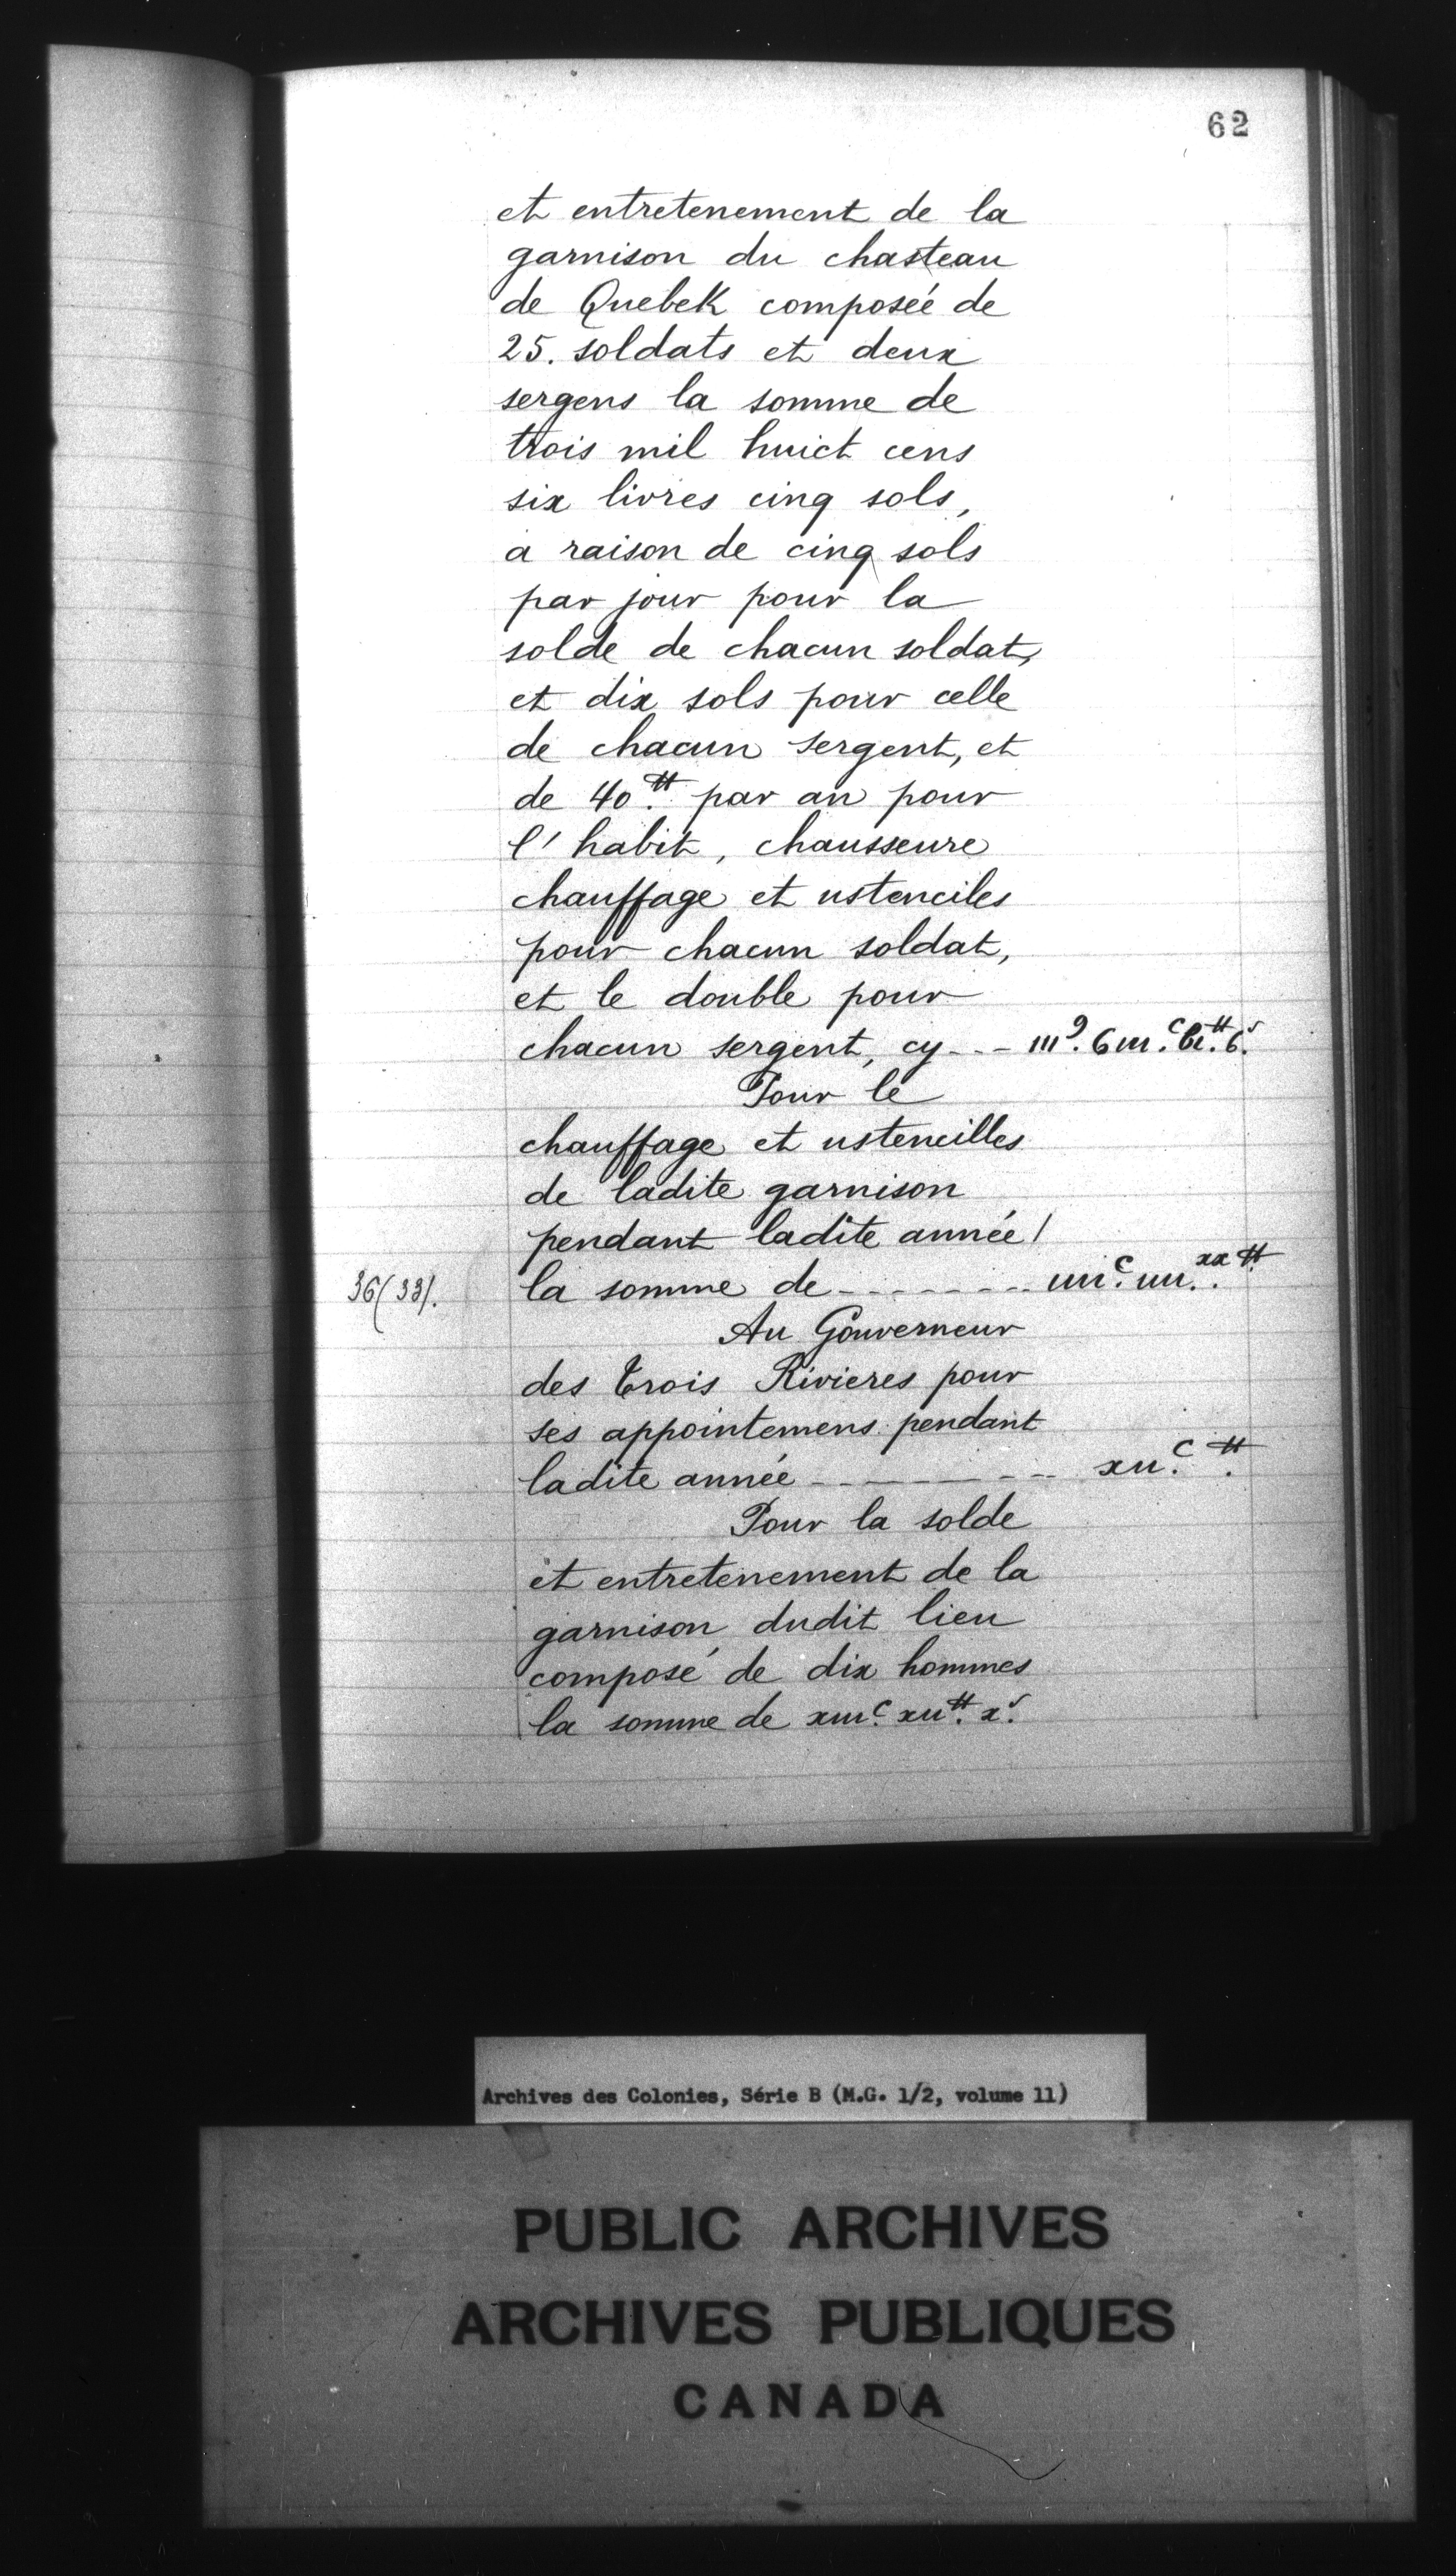 62
et entretenement de la
garnison du chasteau
de Quebek composeé de
25. soldats et deux
sergens la somme de
trois mil huict cens
six livres cinq sols,
a raison de cinq sols
par jour pour la
solde de chacun soldat,
et dix sols pour celle
de chacun sergent, et
de 40.tt par an pour
l'habit, chausseure
chauffage et ustenciles
pour chacun soldat,
et le double pour
chacun sergent, cy
Pour le
chauffage et ustencilles
de ladite garnison
pendant ladite année
36(33). la somme de --------- iiiic. iiii.xx tt
Au Gouverneur
des trois Rivieres pour
ses appointemens pendant
ladite année --------- xii.c tt
Pour la solde
et entretenement de la
garnison dudit lieu
composé de dix hommes
la somme de xiiic. xiitt. xs.
Archives des Colonies, Série B (M.G. 1/2, volume 11)
PUBLIC ARCHIVES
ARCHIVES PUBLIQUES
CANADA